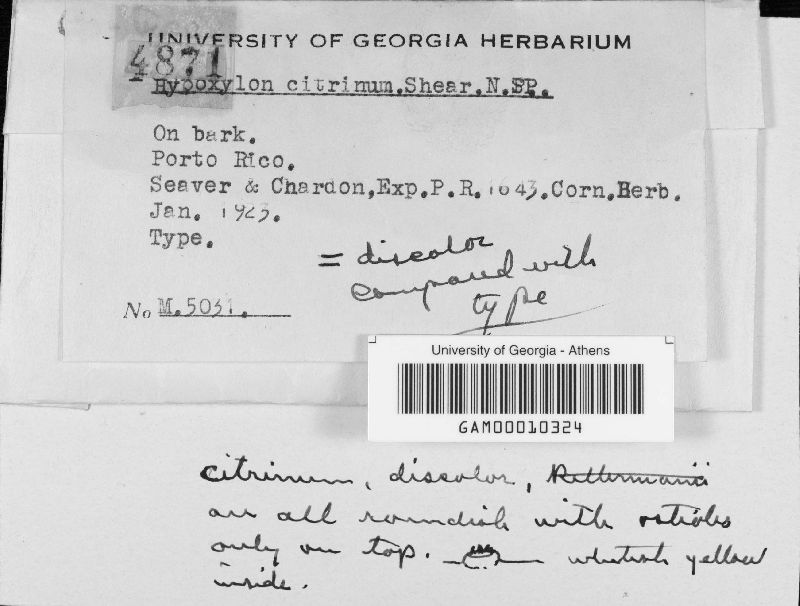 UNIVERSITY OF GEORGIA HERBARIUM
4871
Hypoxylon citrinum.Shear.N.SP.
On bark.
Porto Rico.
Seaver & Chardon,Exp.P.R.1643.Corn.Herb.
Jan. 1923.
Type.
= discolor
compared with
type
No M.5031.
University of Georgia - Athens
GAM00010324
citrinum, discolor,
are all roundish with ostioles
only on top. whitish yellow
inside.